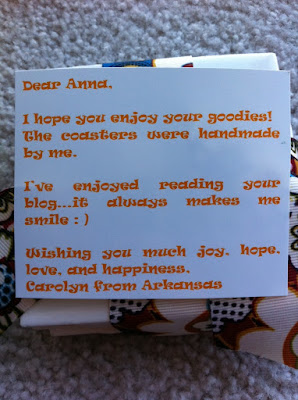 Dear Anna,
I hope you enjoy your goodies!
The coasters were handmade
by me.
I've enjoyed reading your
blog...it always makes me
smile : )
Wishing you much joy, hope,
love, and happiness,
Carolyn from Arkansas